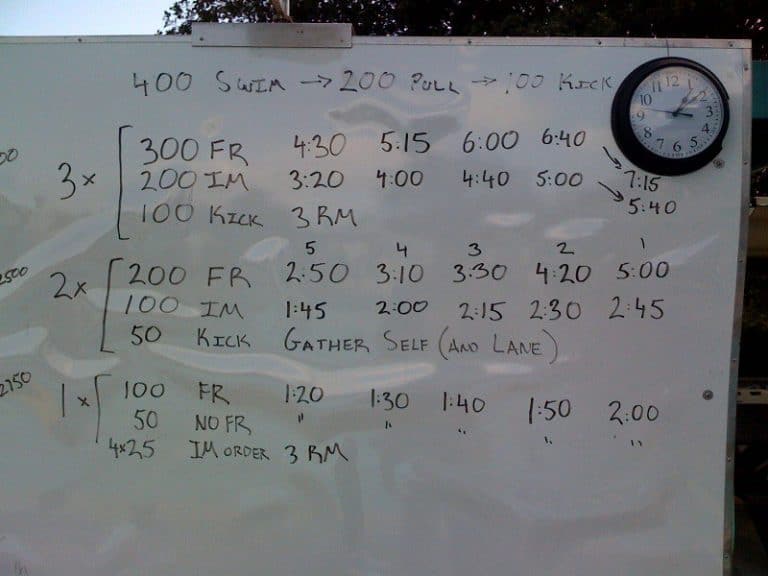 400 SWIM → 200 PULL → 100 KICK
3x [ 300 FR 4:30 5:15 6:00 6:40 → 7:15
200 IM 3:20 4:00 4:40 5:00 → 5:40
100 KICK 3 RM
5 4 3 2 1
2500 2x [ 200 FR 2:50 3:10 3:30 4:20 5:00
100 IM 1:45 2:00 2:15 2:30 2:45
50 KICK GATHER SELF (AND LANE)
2750 1x [ 100 FR 1:20 1:30 1:40 1:50 2:00
50 NO FR " " " " "
4x25 IM ORDER 3 RM
11 12 1 2 3 4 5 6 7 8 9 10